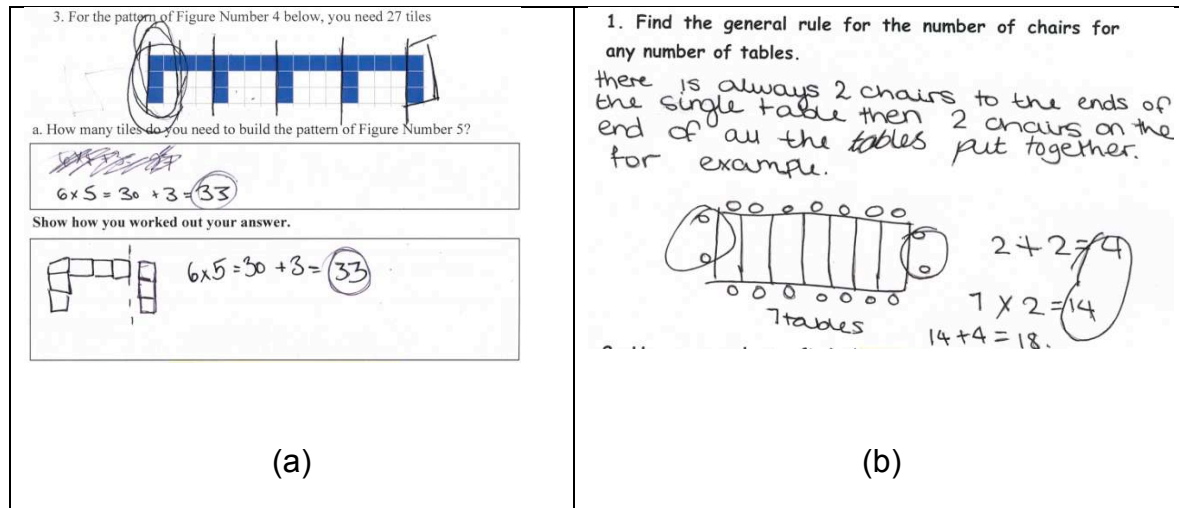 3. For the pattern of Figure Number 4 below, you need 27 tiles
a. How many tiles do you need to build the pattern of Figure Number 5?
6x5=30 +3=33
Show how you worked out your answer.
6x5=30 +3= 33
(a)
1. Find the general rule for the number of chairs for
any number of tables.
there is always 2 chairs to the ends of
the single table then 2 chairs on the
end of all the tables put together.
for example.
2+2=4
7 x 2=14
14+4=18.
7tables
(b)